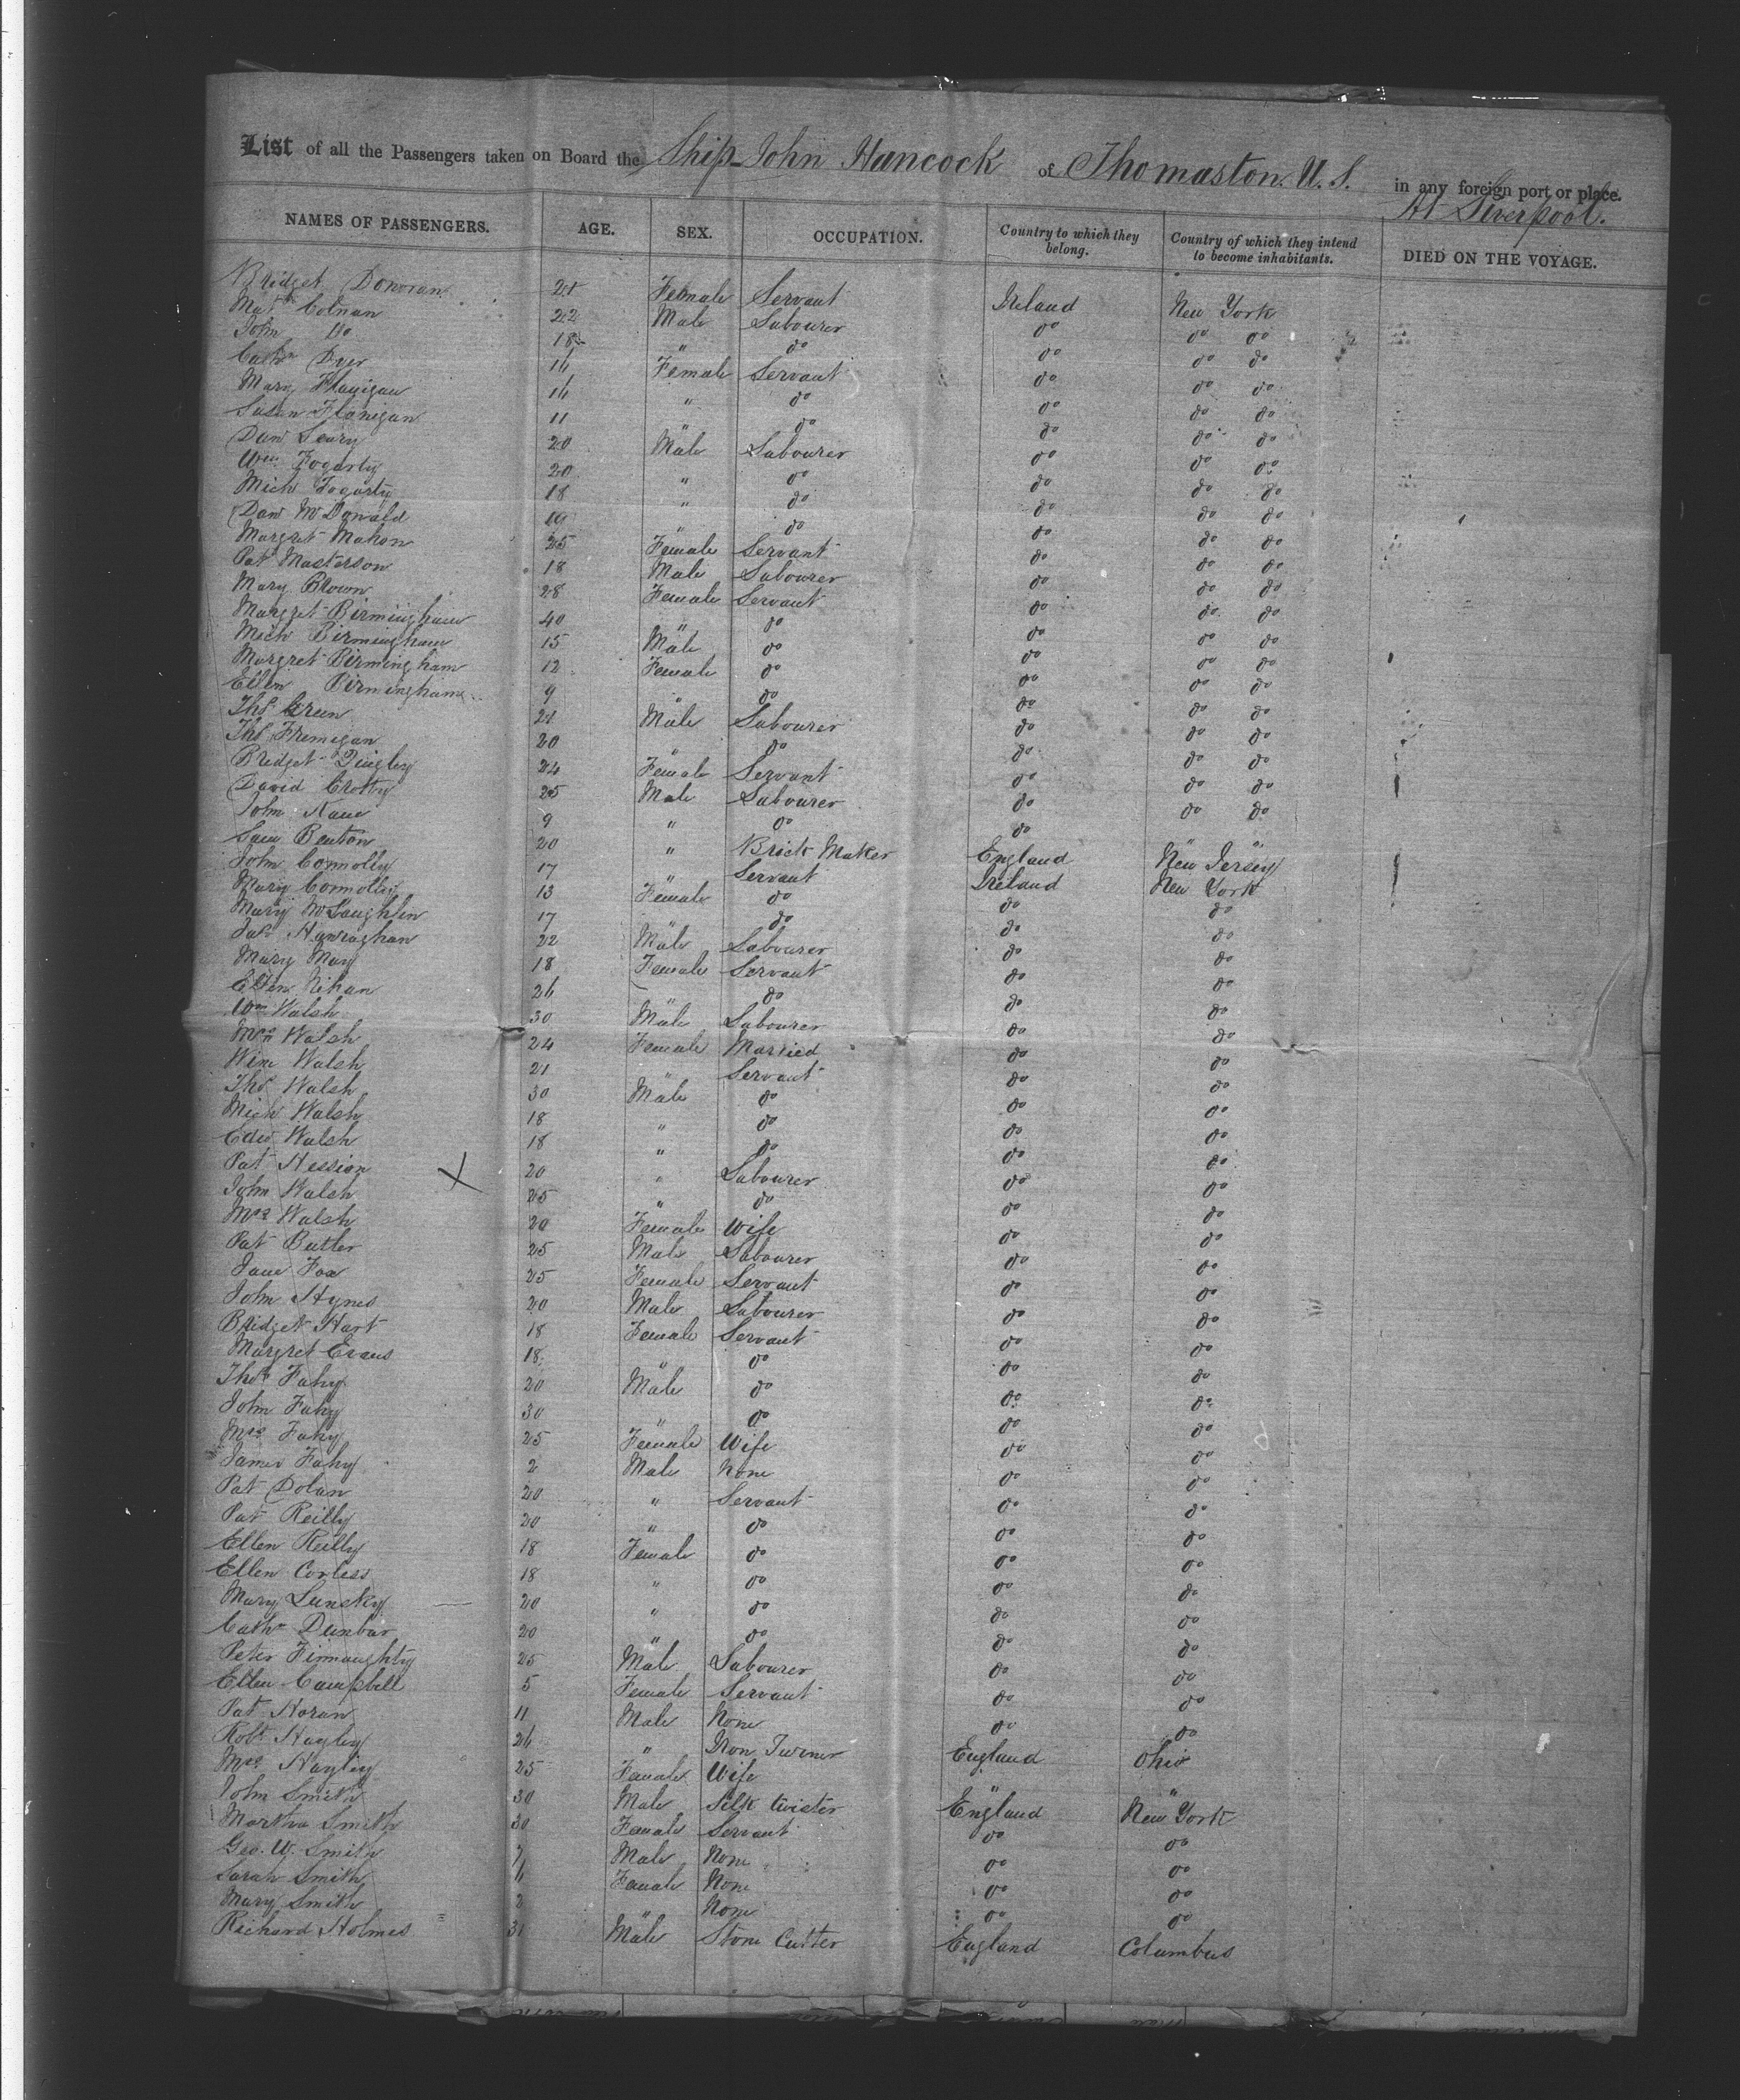 List of all the Passengers taken on Board the Ship John Hancock of Thomaston. U. S. in any foreign port or place.
At Liverpool.
NAMES OF PASSENGERS. AGE. SEX. OCCUPATION. Country to which they belong. Country of which they intend to become inhabitants. DIED ON THE VOYAGE.
Bridget Donovan 21 Female Servant Ireland New York
Mat Colnan 22 Male Labourer do do do
John Do 18 " do do do do
Cathn Dyer 16 Female Servant do do do
Mary Flanigan 16 " do do do do
Susan Flanigan 11 " do do do do
Dan Leary 20 Male Labourer do do do
Wm Fogarty 20 " do do do do
Mich Fogarty 18 " do do do do
Dan McDonald 19 " do do do do
Margret Mahon 25 Female Servant do do do
Pat Masterson 18 Male Labourer do do do
Mary Brown 28 Female Servant do do do
Margret Birmingham 40 " do do do do
Mich Birmingham 15 Male do do do do
Margret Birmingham 12 Female do do do do
Ellen Birmingham 9 " do do do do
Thos Green 21 Male Labourer do do do
Thos Frenigan 20 " do do do do
Bridget Quigley 24 Female Servant do do do
David Crotty 25 Male Labourer do do do
John Kane 9 " do do " "
Sam Benton 20 " Brick Maker England New Jersey
John Connolly 17 " Servant Ireland New York
Mary Connolly 13 Female do do do
Mary McLaughlin 17 " do do do
Pat Hanraghan 22 Male Labourer do do
Mary May 18 Female Servant do do
Ellen Nihan 26 " do do do
Wm Walsh 30 Male Labourer do do
Mrs Walsh 24 Female Married do do
Winn Walsh 21 " Servant do do
Thos Walsh 30 Male do do do
Mich Walsh 18 " do do do
Edw Walsh 18 " do do do
Pat Hession 20 " Labourer do do
John Walsh 25 " do do do
Mrs Walsh 20 Female Wife do do
Pat Butler 25 Male Labourer do do
Jane Fox 25 Female Servant do do
John Hynes 20 Male Labourer do do
Bridget Hart 18 Female Servant do do
Margret Evans 18 " do do do
Thos Fahy 20 Male do do do
John Fahy 30 " do do do
Mrs Fahy 25 Female Wife do do
James Fahy 2 Male None do do
Pat Dolan 20 " Servant do do
Pat Reilly 20 " do do do
Ellen Reilly 18 Female do do do
Ellen Corless 18 " do do do
Mary Lunsky 20 " do do do
Cathn Dunbar 20 " do do do
Peter Finnaughty 25 Male Labourer do do
Ellen Campbell 5 Female Servant do do
Pat Horan 11 Male None do do
Robt Hayley 26 " Iron Turner England Ohio
Mrs Hayley 25 Female Wife " "
John Smith 30 Male Silk twister England New York
Martha Smith 30 Female Servant do do
Geo. W. Smith 7 Male None do do
Sarah Smith 6 Female None do do
Mary Smith 2 " None do do
Richard Holmes 31 Male Stone Cutter England Columbus